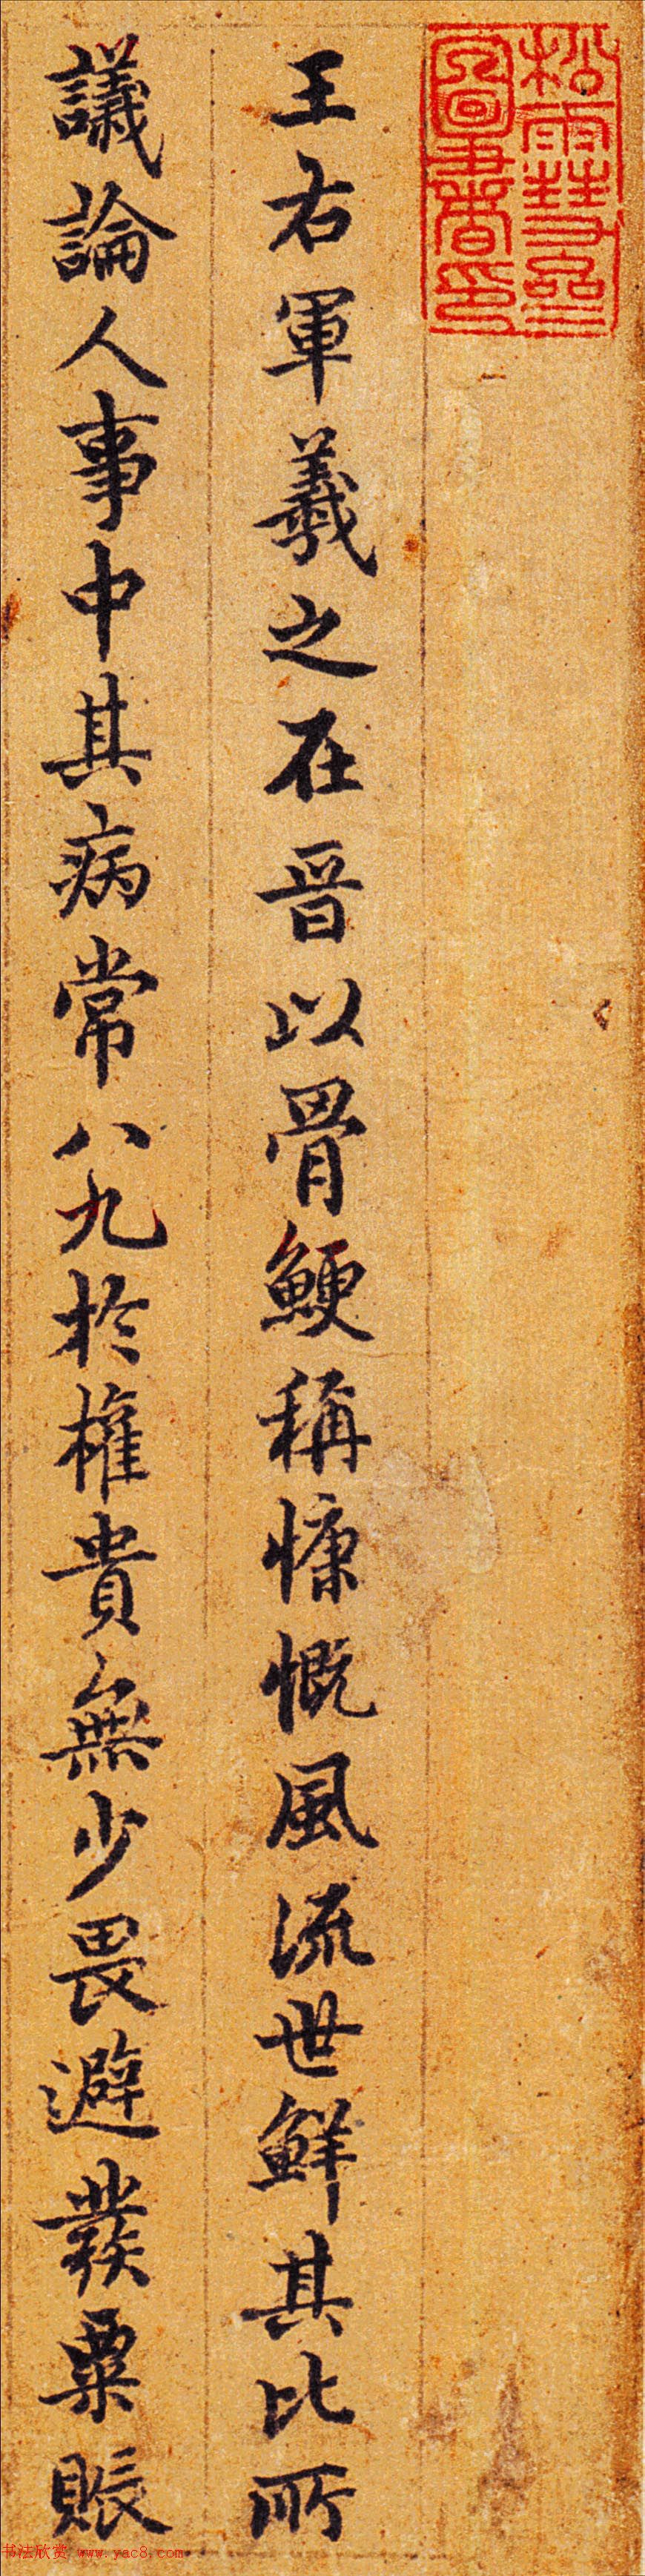 王右軍羲之在晉以骨鯁稱慷慨風流世鮮其比所
議論人事中其病常八九於權貴無少畏避發粟賑
书法欣赏 www.yac8.com